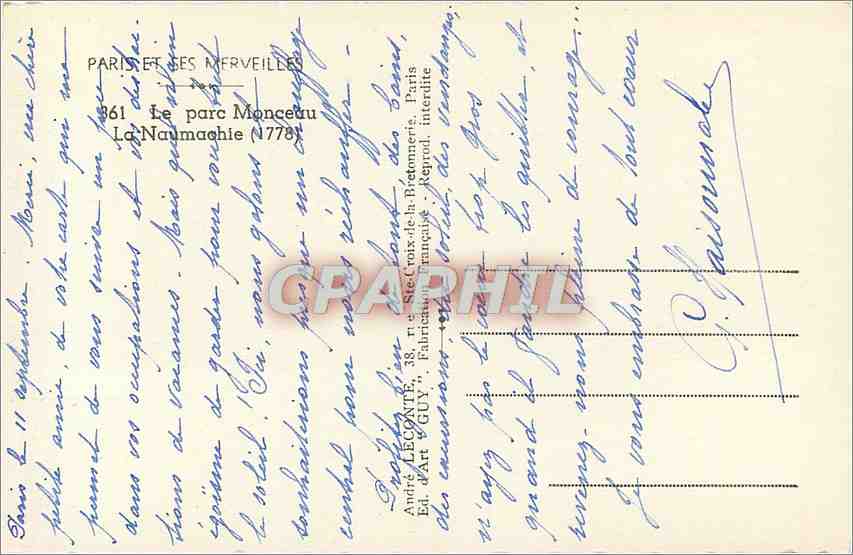 PARIS ET SES MERVEILLES
361 Le parc Monceau
La Naumachie (1778)
André LECONTE, 38, rue Ste-Croix-de-la-Bretonnerie, Paris
Ed. d'Art "GUY". Fabrication Française - Reprod. interdite
CPAPHIL
Paris le 11 septembre. Merci, ma chère
petite amie, de votre carte qui me
permet de vous suivre un peu
dans vos occupations et vos distrac-
tions de vacances. Mais quel vilain
égoïsme de garder pour vous tout
le soleil! Ici, nous gelons et
souhaitions presque un chauffage
central pour nous réchauffer -
Profitez bien des bains,
des excursions, du soleil, des vendanges,
n'ayez pas le cœur trop gros
quand il faudra les quitter, et
revenez-nous pleine de courage...
Je vous embrasse de tout cœur